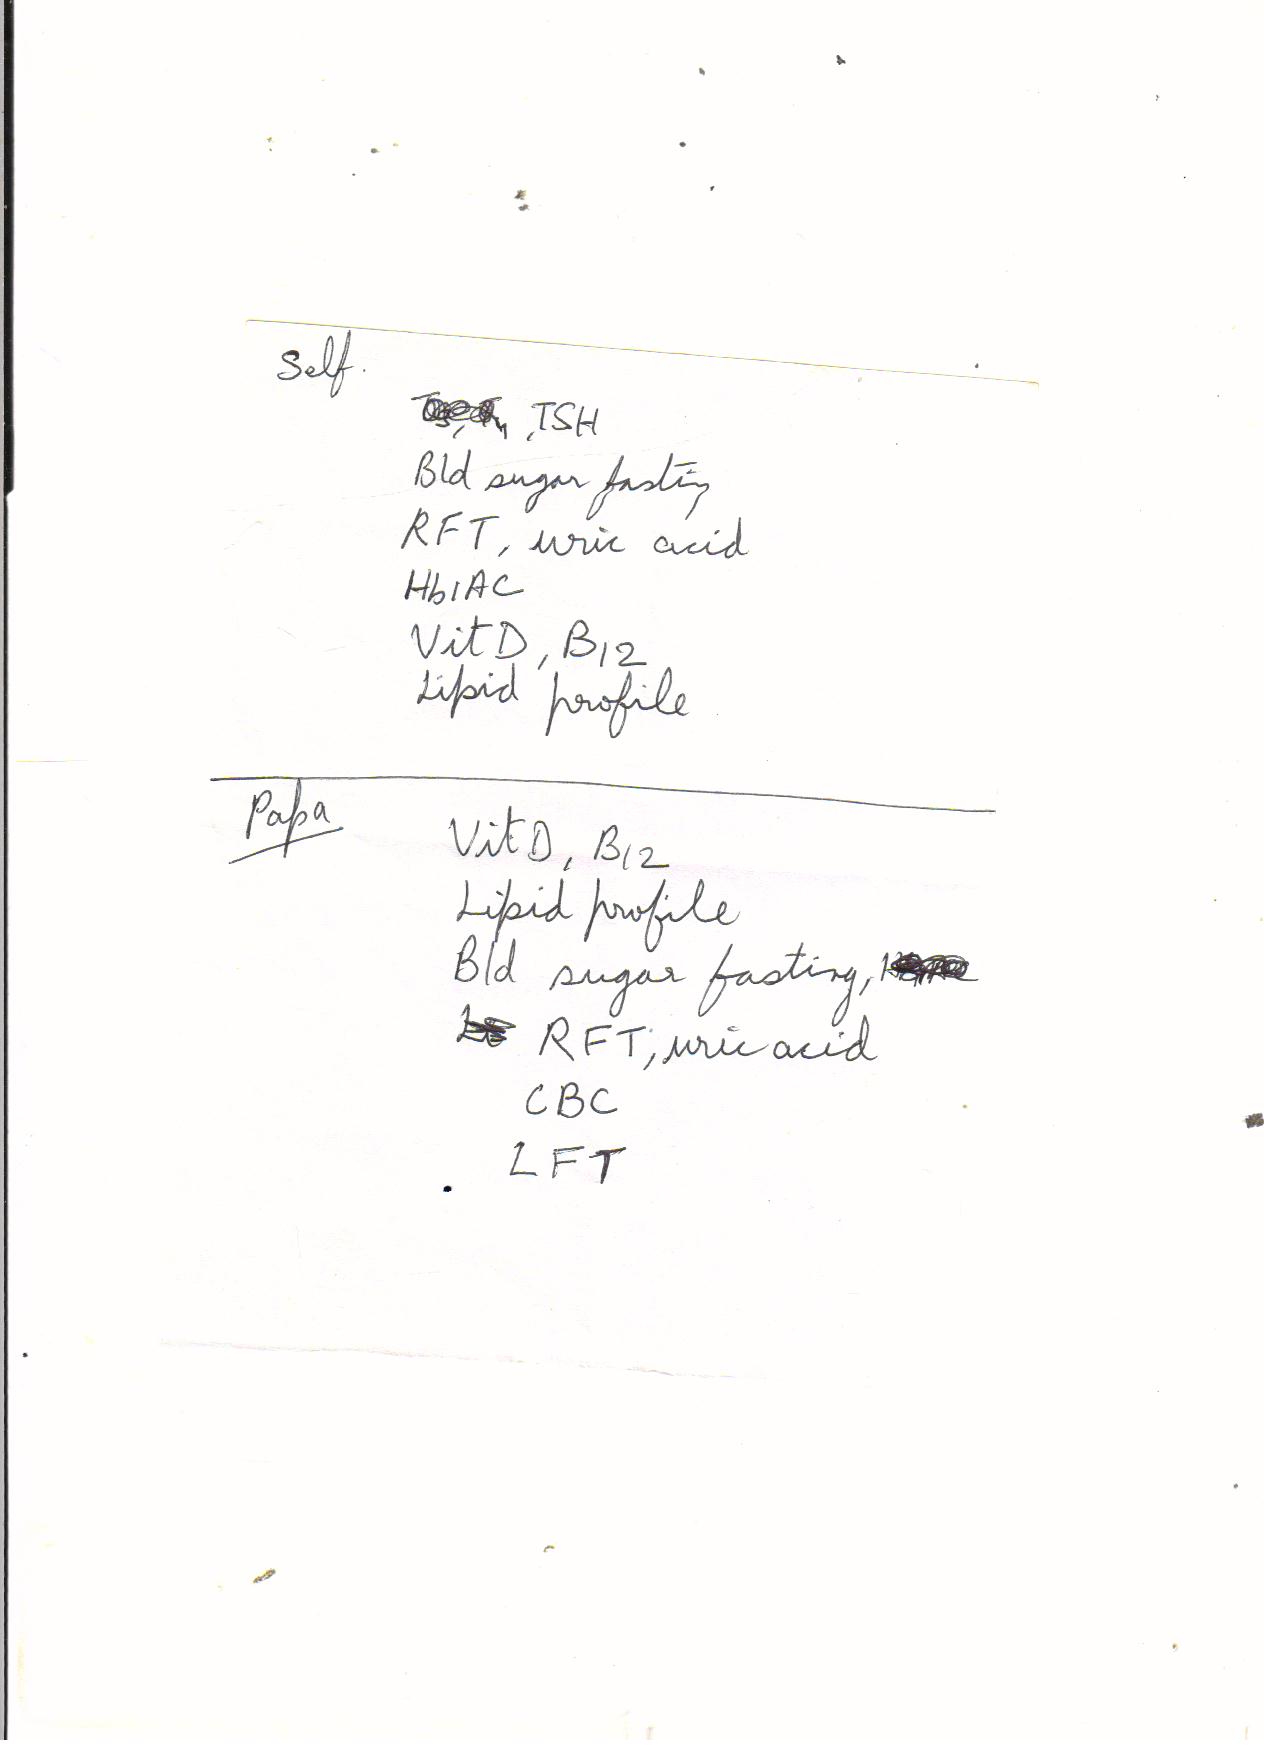 Self.
, TSH
Bld sugar fasting
RFT, uric acid
Hb1AC
Vit D, B12
Lipid profile
Papa
Vit D, B12
Lipid profile
Bld sugar fasting,
RFT, uric acid
CBC
LFT